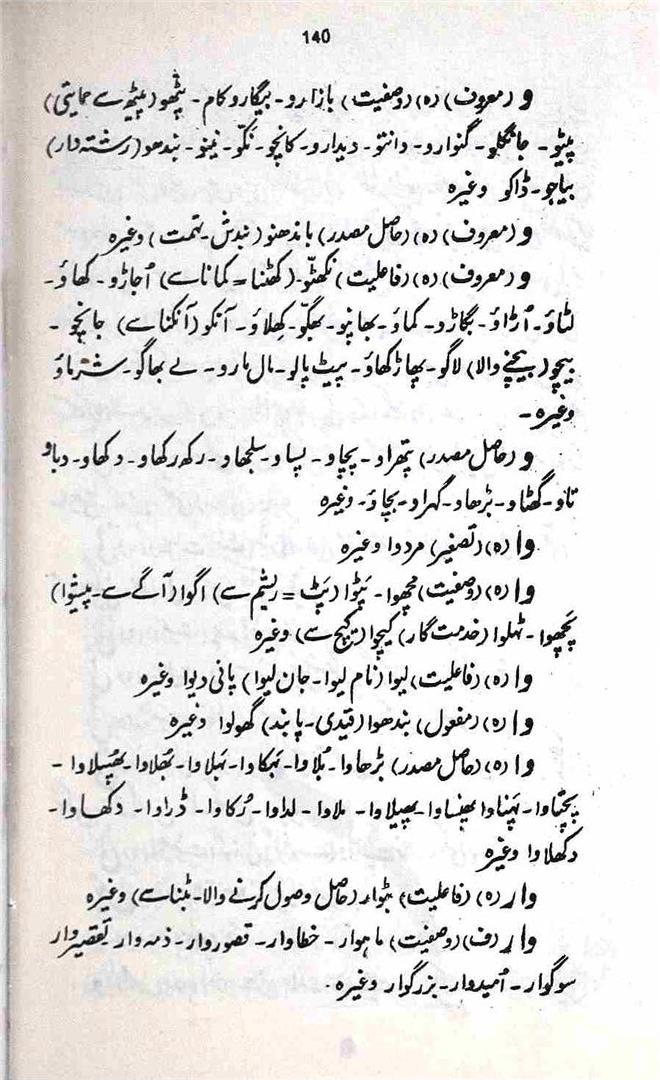 140
و (معروف) (ہ) (وصفیت) بازارو۔ بیگارو کام۔ پٹھو (پیٹھ سے حمایتی)
پیٹو۔ جانگلو۔ گنوارو۔ دانتو۔ دیدارو۔ کانچو۔ نکّو۔ نینو۔ بندھو (رشتہ دار)
بیاجو۔ ڈاکو وغیرہ
و (معروف) (ہ) (حاصل مصدر) باندھنو (بندش۔ تہمت) وغیرہ
و (معروف) (ہ) (فاعلیت) نکھٹّو۔ (کھٹنا = کمانا سے) اُجاڑو۔ کھاؤ۔
لٹاؤ۔ اُڑاؤ۔ بگاڑو۔ کماؤ۔ بھانپو۔ بھگّو۔ کھلاؤ۔ آنکو (آنکنا سے) جانچو۔
بیچو (بیچنے والا) لاگو۔ پھاڑ کھاؤ۔ پیٹ پالو۔ مال مارو۔ لے بھاگو۔ شرماؤ
وغیرہ۔
و (حاصل مصدر) پتھراو۔ پچاو۔ پساو۔ سلجھاو۔ رکھ رکھاو۔ دکھاو۔ دباو
تاو۔ گھٹاو۔ بڑھاو۔ گہراو۔ بچاؤ۔ وغیرہ
وا (ہ) (تصغیر) مردوا وغیرہ
وا (ہ) (وصفیت) مچھوا۔ پَٹوا (پَٹ = ریشم سے) اگوا (آگے سے۔ پیشوا)
پَچھوا۔ ٹہلوا (خدمت گار) کیچوا (کیچ سے) وغیرہ
وا (ہ) (فاعلیت) لیوا (نام لیوا۔ جان لیوا) پانی دیوا وغیرہ
وا (ہ) (مفعول) بندھوا (قیدی۔ پابند) گھولوا وغیرہ
وا (ہ) (حاصل مصدر) بڑھاوا۔ بُلاوا۔ بَہکاوا۔ بَہلاوا۔ بُھلاوا۔ پھُسلاوا۔
پچتاوا۔ پَہناوا پھنساوا۔ پھیلاوا۔ ملاوا۔ لداوا۔ رُکاوا۔ ڈراوا۔ دکھاوا۔
دکھلاوا وغیرہ
وار (ہ) (فاعلیت) بٹوار (حاصل وصول کرنے والا۔ بٹنا سے) وغیرہ
وار (ف) (وصفیت) ماہوار۔ خطاوار۔ قصوروار۔ ذمہ وار۔ تقصیروار
سوگوار۔ اُمیدوار۔ بزرگوار وغیرہ۔